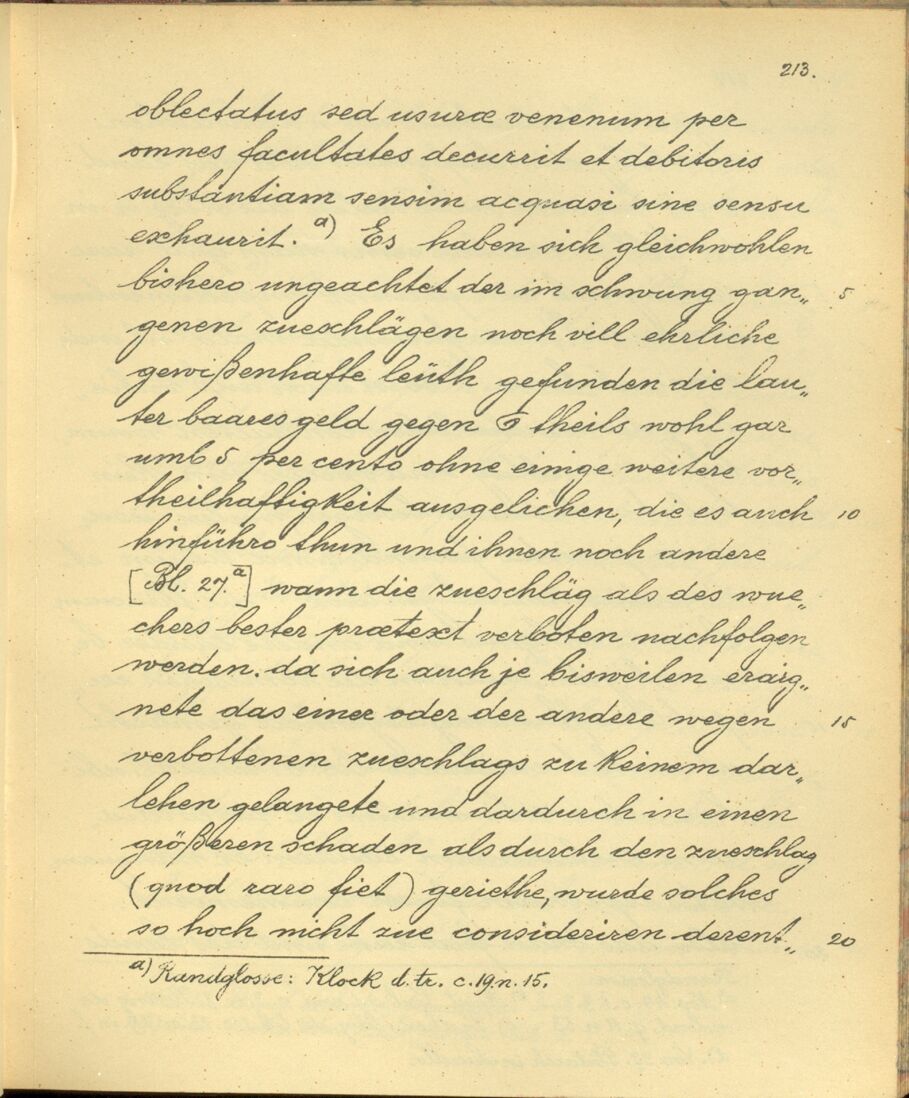 213.
oblectatus sed usuræ venenum per
omnes facultates decurrit et debitoris
substantiam sensim acquasi sine sensu
exhaurit. a) Es haben sich gleichwohlen
bishero ungeachtet der im schwung gan„ 5
genen zueschlägen noch vill ehrliche
gewißenhafte leüth gefunden die lau„
ter baares geld gegen 6 theils wohl gar
umb 5 per cento ohne einige weitere vor„
theilhaftigkeit ausgelichen, die es auch 10
hinführo thun und ihnen noch andere
[Bl. 27.a] wann die zueschläg als des wue„
chers bester prætext verboten nachfolgen
werden. da sich auch je bisweilen eraig„
nete das einer oder der andere wegen 15
verbottenen zueschlags zu keinem dar„
lehen gelangete und dardurch in einen
größeren schaden als durch den zueschlag
(quod raro fiet) geriethe, wurde solches
so hoch nicht zue consideriren derent„ 20
a) Randglosse: Klock d. tr. c. 19. n. 15.